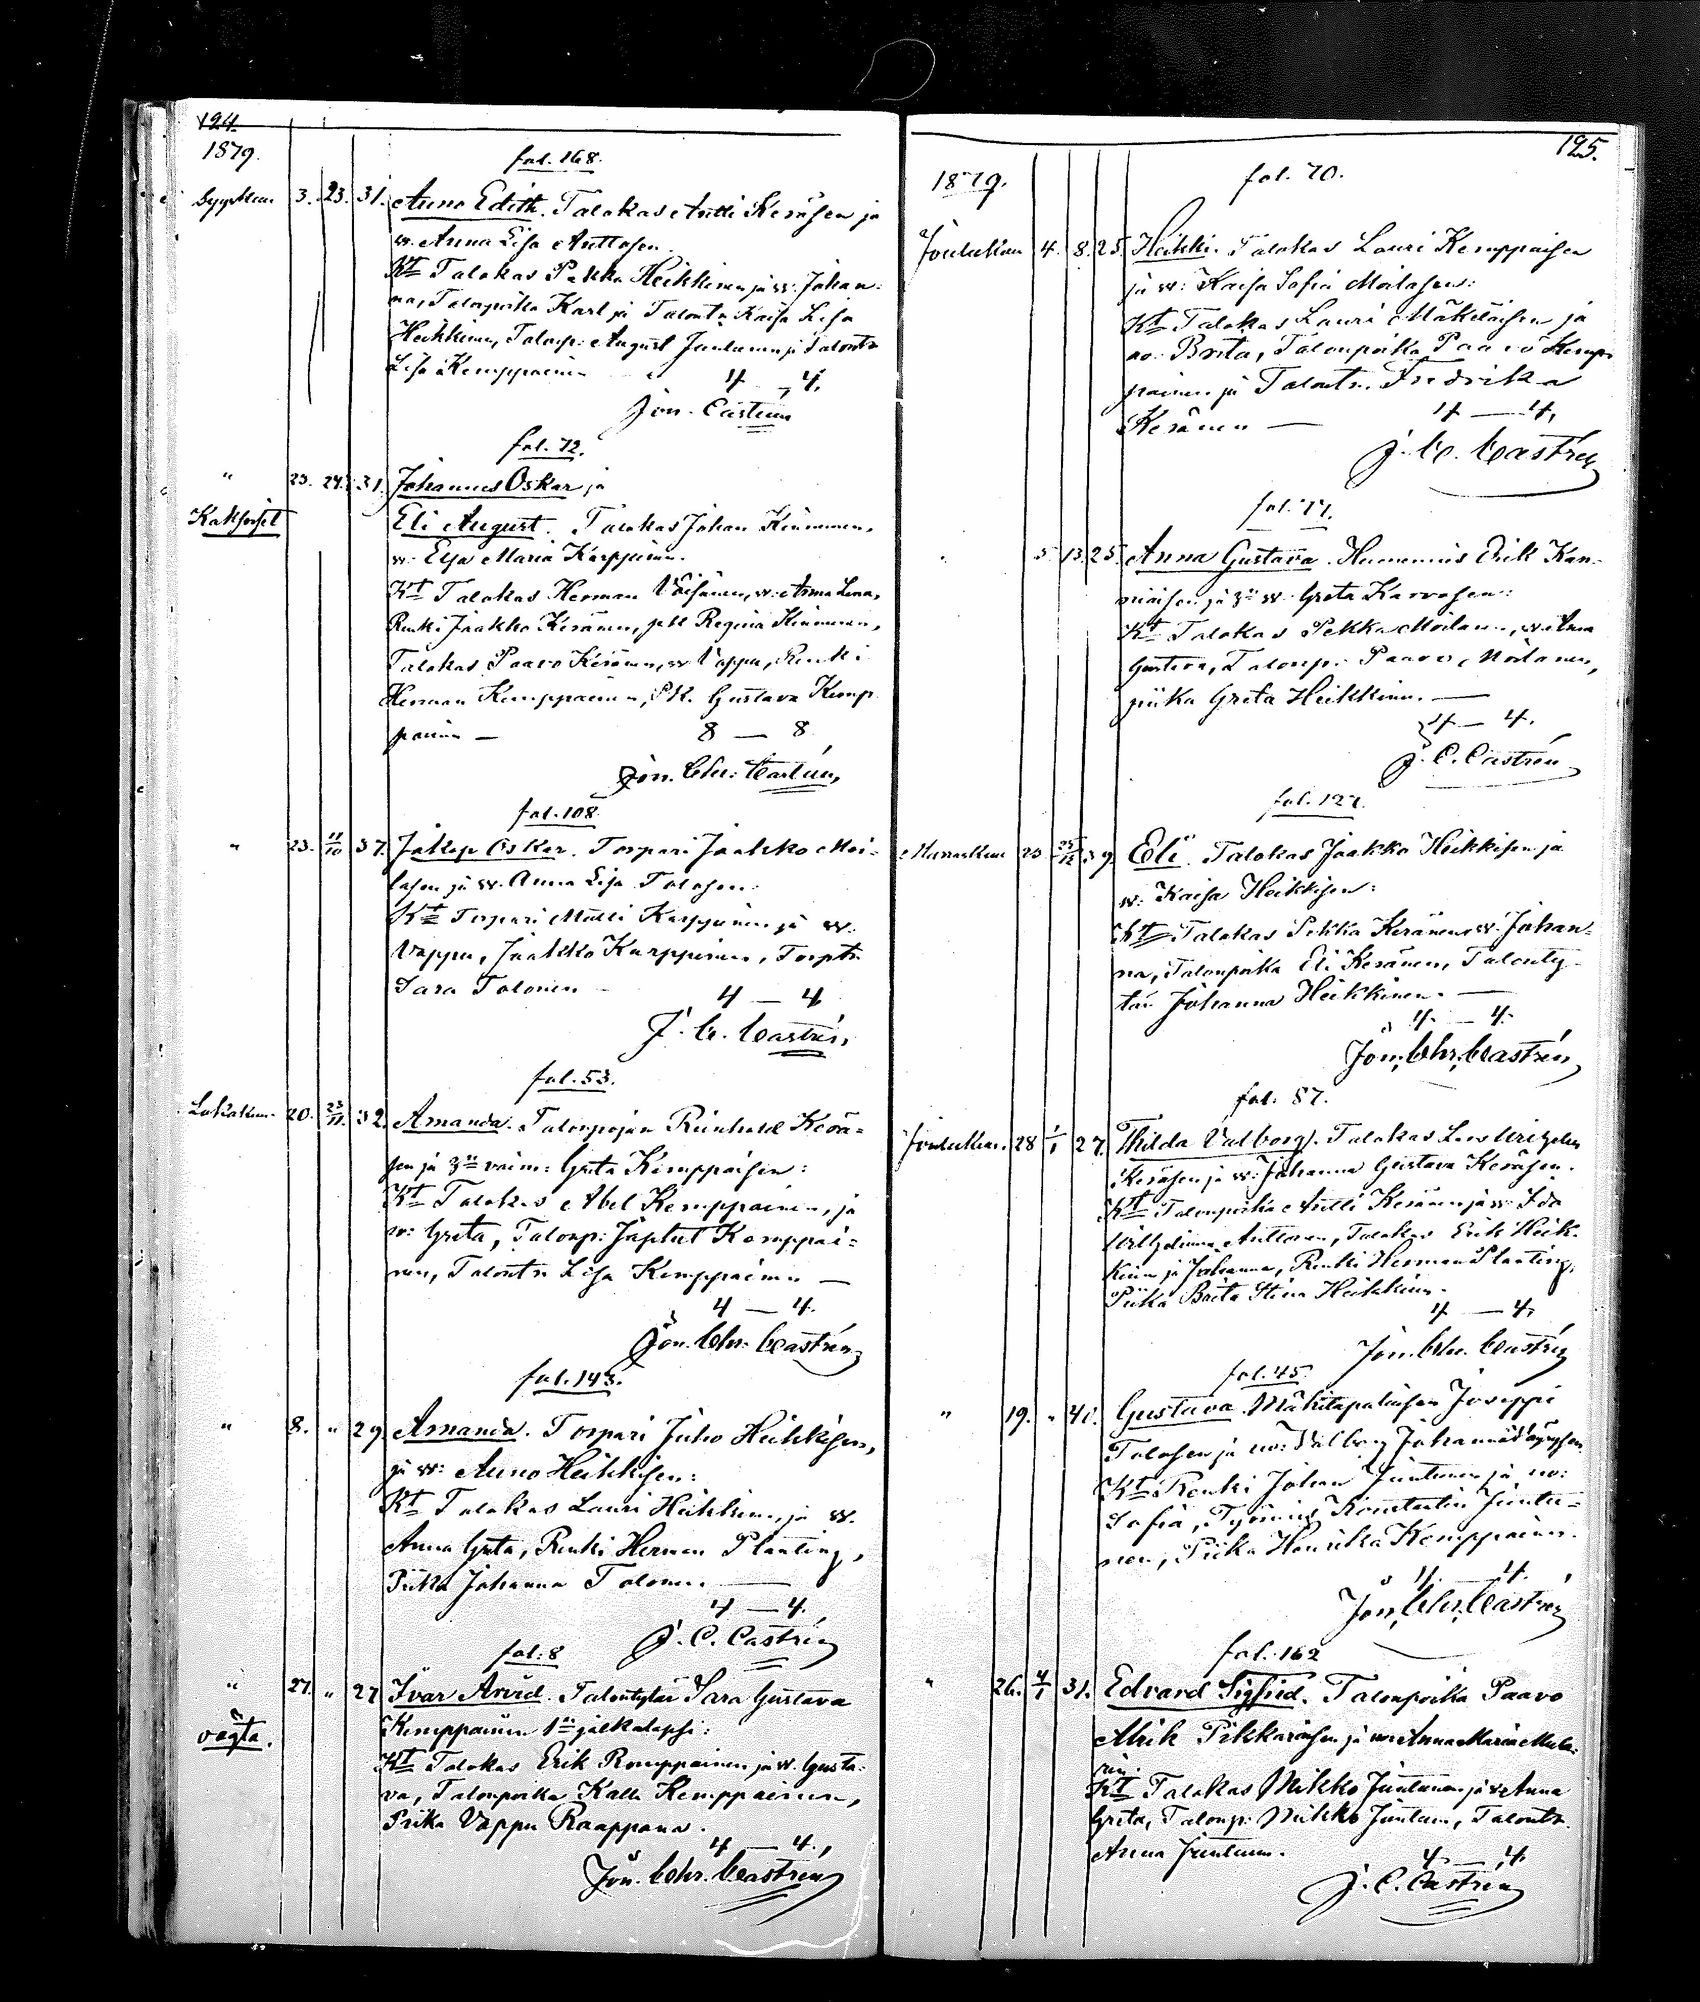 124.
1879.
fol. 168.
Syyskuu 3. 23. 31. Anno Edith. Talokas Antti Keräsen ja
w. Anna Lisa Anttosen.
Kt Talokas Pekka Heikkinen ja w. Johan=
na, Talonpoika Karl ja Talontr Kaisa Lisa
Heikkinen, Talonp. August Juntunen ja Talontr
Lisa Kemppainen 4 — 4.
Jon. Castrén
fol. 72.
" 23. 24. 31. Johannes Oskar ja
Kaksoiset
Eli August. Talokas Johan Kinnunen,
w. Elsa Maria Karppinen.
Kt Talokas Herman Väisänen, w. Anna Lena,
Renki Jaakko Keränen, Regina Kinnunen,
Talokas Paavo Keränen, w Vappu, Renki
Herman Kemppainen, Pk. Gustava Kemp
painen — 8 — 8
Jon. Chr. Castrén,
fol. 108
" 23. 11/10 37. Jakop Oskar. Torpari Jaakko Moi=
lasen ja w. Anna Lisa Tolosen:
Kt Torpari Matti Karppinen ja w.
Vappu, Jaakko Karppinen, Torptr
Sara Tolonen — 4 — 4
J. C. Castrén,
fol. 53.
Lokakuu. 20. 23/11. 32. Amanda. Talonpojan Reinhold Kerä=
sen ja 3:n vaim: Greta Kemppaisen:
Kt Talokas Abel Kemppainen, ja
w: Greta, Talonp: Japhet Kemppai=
nen, Talontr Lisa Kemppainen —
4 — 4.
Jon. Chr. Castrén
fol. 143.
" 8. " 29 Amanda. Torpari Juho Heikkisen,
ja w: Anno Heikkisen:
Kt Talokas Lauri Heikkinen, ja w.
Anna Greta, Renki Herman Planting,
Piika Johanna Tolonen. —
4 — 4.
J. C. Castrén
fol. 8
" 27. " 27 Ivar Arvid. Talontytär Sara Gustava
vägta.
Kemppainen 1:n jalkalapsi:
Kt Talokas Erik Romppainen ja w. Gusta=
va, Talonpoika Kalle Kemppainen,
Piika Vappu Raappana.
4 — 4.,
Jon. Chr. Castrén
125.
1879.
fol. 70.
Joulukuu 4. 8. 25. Heikki. Talokas Lauri Kemppaisen
ja w: Kaisa Sofia Moilasen:
Kt Talokas Lauri Mäkeläisen ja
wo. Brita, Talonpoika Paavo Kemp=
painen ja Talontr. Fredrika
Keränen — 4 — 4,
J. C. Castrén
fol. 77.
5 13. 25. Anna Gustava. Huonemies Erik Kan-
niaisen ja 3:n w. Greta Karvosen:
Kt Talokas Pekka Moilanen, w. Anna
Gustava, Talonp: Paavo Moilanen,
piika Greta Heikkinen. —
4 — 4.
J. C. Castrén
fol. 127.
Marraskuu 23 25/12 39. Eli. Talokas Jaakko Heikkisen ja
w. Kaisa Heikkisen:
Kt Talokas Pekka Keränen, w. Johan=
na, Talonpoika Eli Keränen, Talonty-
tär Johanna Heikkinen. —
4. — 4.
Jon. Chr. Castrén
fol. 87.
Joulukuu. 28 1/1 27. Hilda Valborg.
Keräsen ja w: Johanna Gustava Keräsen.
Kt Talonpoika Antti Keränen ja w. Ida
Wilhelmina Anttonen, Talokas Erik Heik=
kinen ja Johanna, Renki Herman Planting,
Piika Brita Stina Heikkinen.
4 — 4,
Jon. Chr. Castrén
fol. 45.
" 19. " 40. Gustava. Mäkitupalaisen Joseppi
Tolosen ja wo: Valborg Johanna
Kt Renki Johan Juntunen ja wo:
Sofia, Työmies Konstantin Juntu=
nen, Piika Henrika Kemppainen.
4 — 4.
Jon. Chr. Castrén
fol. 162
" 26. 4/1 31. Edvard Sigfrid. Talonpoika Paavo
Alrik Pikkaraisen ja w: Anna Maria
Kt Talokas Mikko Juntunen ja w. Anna
Greta, Talonp: Mikko Juntunen, Talontr.
Anna Juntunen.
4 — 4.
J. C. Castrén